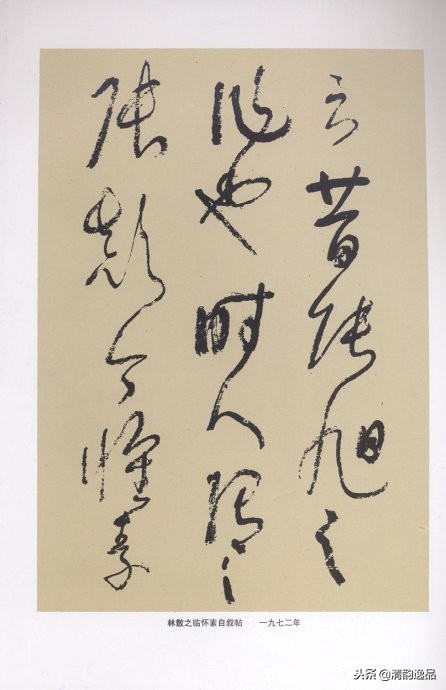 云昔張旭之
作也時人謂之
張顛今懷素
林散之临怀素自叙帖 一九七二年
头条 @清韵逸品